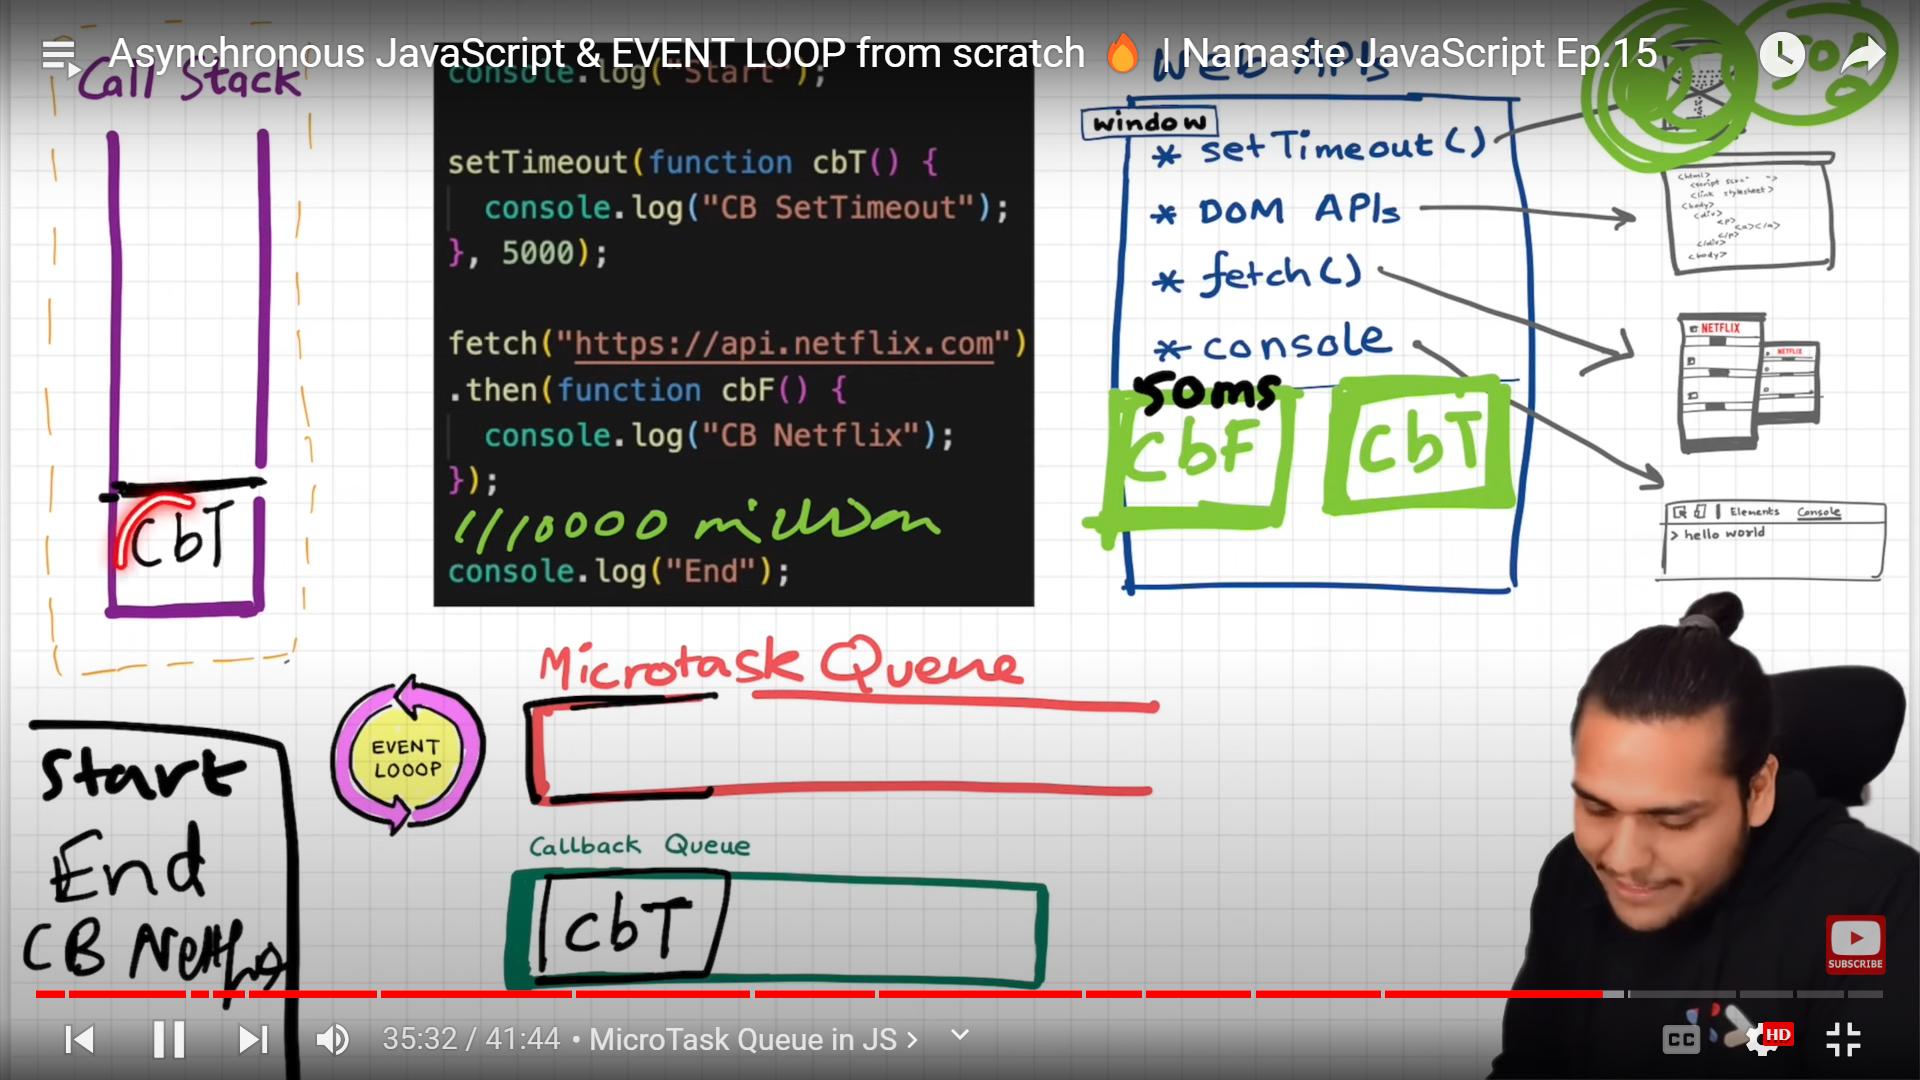 Asynchronous JavaScript & EVENT LOOP from scratch 🔥 | Namaste JavaScript Ep.15
Call Stack
CbT
console.log("Start");
setTimeout(function cbT() {
console.log("CB SetTimeout");
}, 5000);
fetch("https://api.netflix.com")
.then(function cbF() {
console.log("CB Netflix");
});
console.log("End");
Web APIs
window
* setTimeout()
* DOM APIs
* fetch()
* console
50ms
CbF
CbT
<html>
<body>
<div>
<p>
<a></a>
</p>
</div>
<body>
NETFLIX
NETFLIX
Elements Console
> hello world
Microtask Queue
EVENT
LOOOP
Callback Queue
cbT
Start
End
CB Netflix
SUBSCRIBE
35:32 / 41:44 • MicroTask Queue in JS >
CC
HD